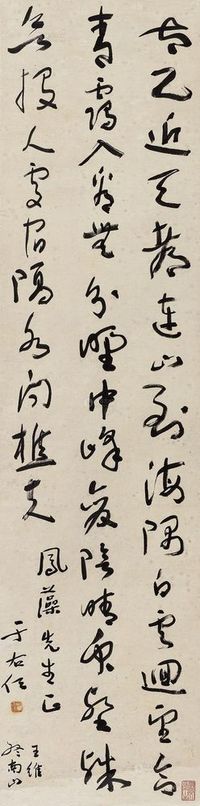 太乙近天都連山到海隅白雲迴望合
青靄入看無分野中峰變陰晴衆壑殊
欲投人處宿隔水問樵夫
鳳藻先生正
于右任
王維
終南山